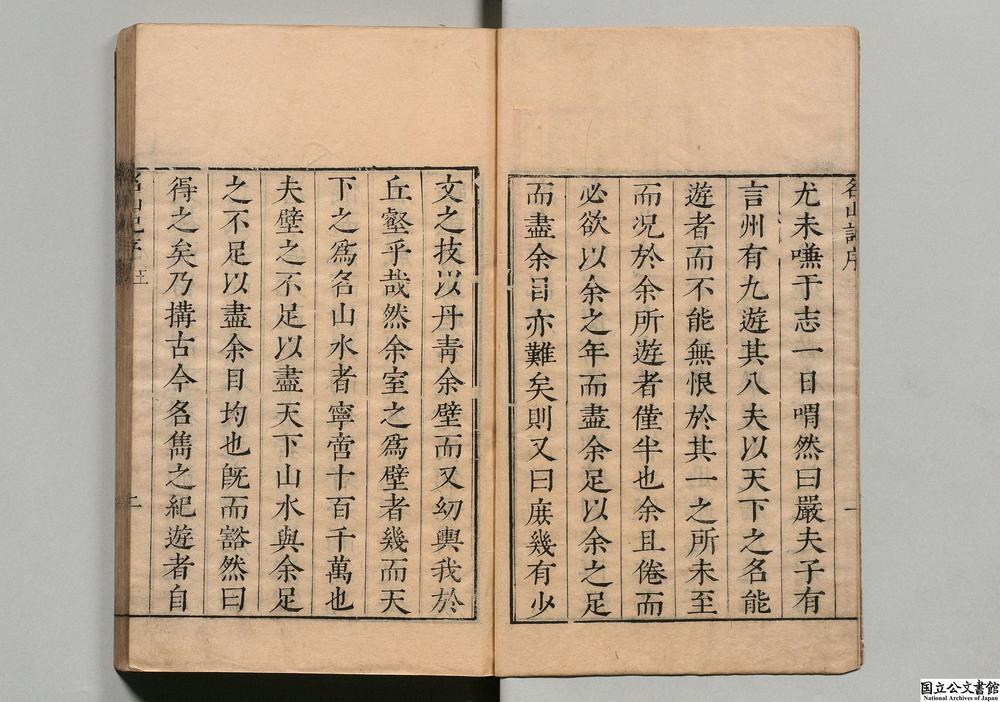 名山記序
尤未嗛于志一日喟然曰嚴夫子有
言州有九遊其八夫以天下之名能
遊者而不能無恨於其一之所未至
而况於余所遊者僅半也余且倦而
必欲以余之年而盡余足以余之足
而盡余目亦難矣則又曰庻幾有少
一
文之技以丹青余壁而又㓜輿我於
丘壑乎哉然余室之爲壁者幾而天
下之爲名山水者寧啻十百千萬也
夫壁之不足以盡天下山水與余足
之不足以盡余目均也旣而豁然曰
得之矣乃搆古今名雋之紀遊者自
名山記序
二
国立公文書館
National Archives of Japan